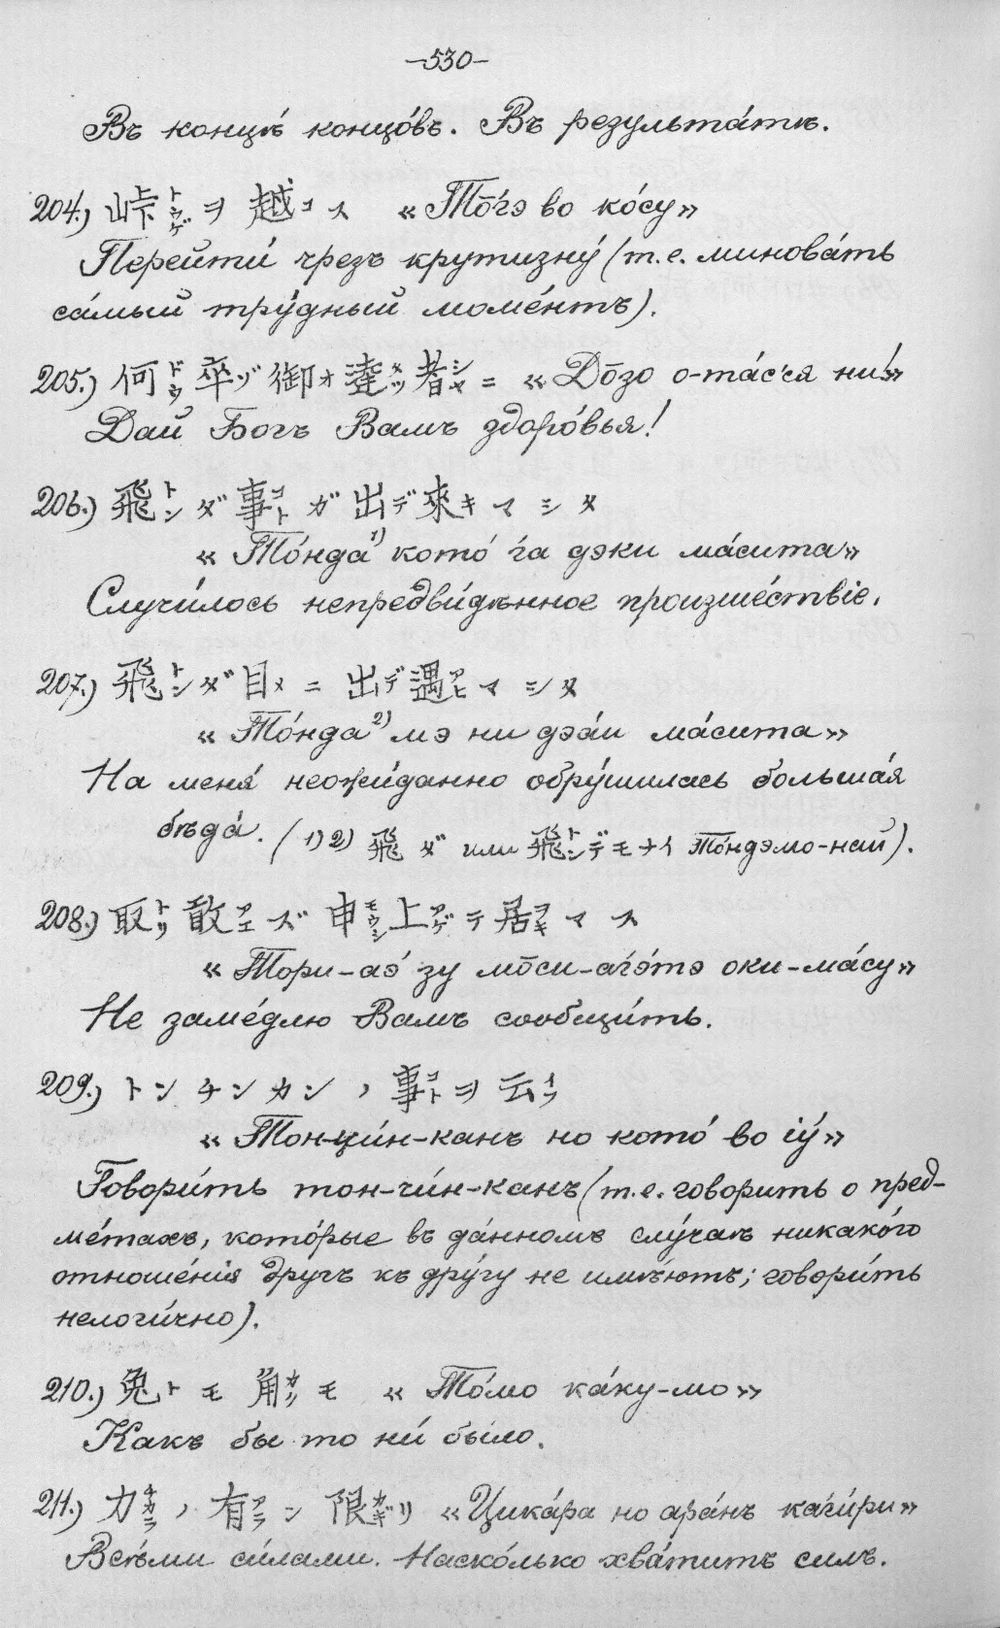 –530–
Въ концѣ́ концо́въ. Въ результа́тѣ.
204.) 峠トウゲヲ 越コス «То̄́гэ во ко́су»
Перейти́ чрезъ крутизну́ (т.е. минова́ть
са́мый тру́дный моме́нтъ).
205.) 何ドウ卒ゾ御オ達タツ者シャニ «До̄зо о-та́сся ни́»
Дай Богъ Вамъ здоро́вья!
206.) 飛トンダ事コトガ出デ來キマシタ
«То́нда¹⁾ кото́ га дэки ма́сита»
Случи́лось непредви́дѣнное произше́ствіе.
207.) 飛トンダ目メニ出デ遇アヒマシタ
«То́нда²⁾ мэ ни дэа́и ма́сита»
На меня́ неожи́данно обру́шилась больша́я
бѣда́. (1) 2) 飛ダ или 飛トンデモナイ То́ндэмо-най).
208.) 取トリ敢アエズ申モウシ上アゲテ居ヲキマス
«Тори-аэ́ зу мо̄си-агэ́тэ оки-ма́су»
Не заме́длю Вамъ сообщи́ть.
209.) トンチンカンノ事コトヲ云イフ
«Тон-ци́н-канъ но кото́ во іу́»
Говори́ть тон-чи́н-канъ (т.е. говорить о пред-
ме́тахъ, кото́рые въ да́нномъ слу́чаѣ никако́го
отноше́нія другъ къ дру́гу не имѣ́ютъ; говори́ть
нелоги́чно).
210.) 兔トモ角カクモ «То́мо ка́ку-мо»
Какъ бы то ни́ было.
211.) 力チカラノ有アラン限カギリ «Цика́ра но ара́нъ каги́ри»
Всѣ́ми си́лами. Наско́лько хва́титъ силъ.